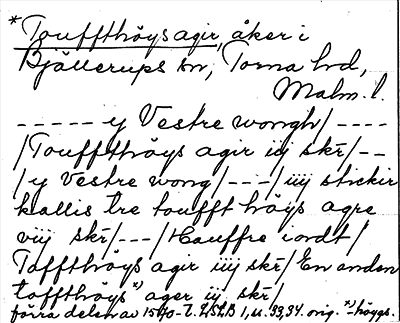 *Touffthöys agir, åker i
Bjällerups sn, Torna hd,
Malm. l.
----- y Vestre wongh/----
/Touffthöys agir iij skr/--
/y Vestre wong/---/iiij stickir
kallis tre toufft höys agre
viij skr/---/Hauffre iordt/
Toffthöys agir iiij skr/En anden
toffthöys*) ager iij skr/
förra delen av 1570-t. LSLB 1, s. 33,34. orig. *)-höygs.